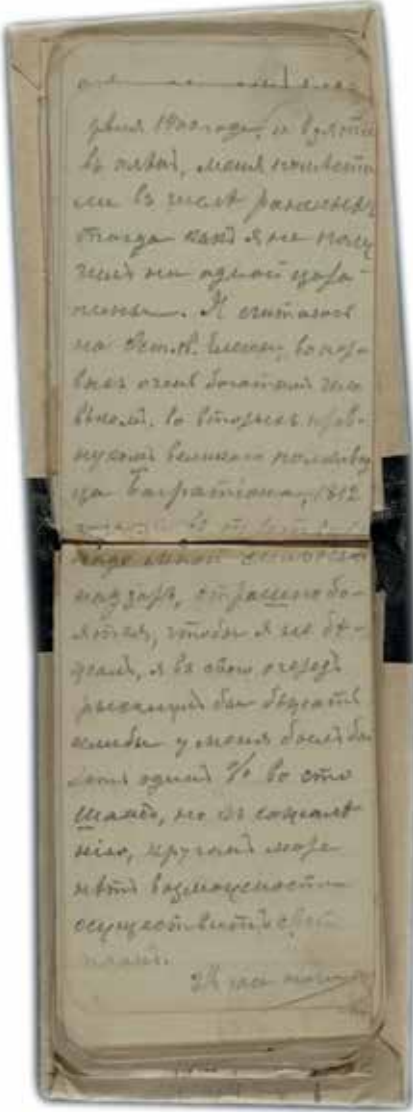 1900 года, и взяти
въ плѣнъ, меня помѣсти-
ли въ числѣ раненыхъ
тогда какъ я не полу
чилъ ни одной цара-
пины. Я считаюсь
на Ост. св. Елены, во пер-
выхъ очень богатымъ чело
вѣкомъ, во вторыхъ прав-
нукомъ великаго полковод
ца Багратіона, 1812
надо мной
надзоръ, страшно бо-
ятся, чтобы я не бѣ-
жалъ, я въ свою очередь
рискнулъ бы бѣжать
если бы у меня былъ бы
хоть одинъ % во сто
шансъ, но къ сожалѣ-
нію, кругомъ море
нѣтъ возможности
осуществить свой
планъ.